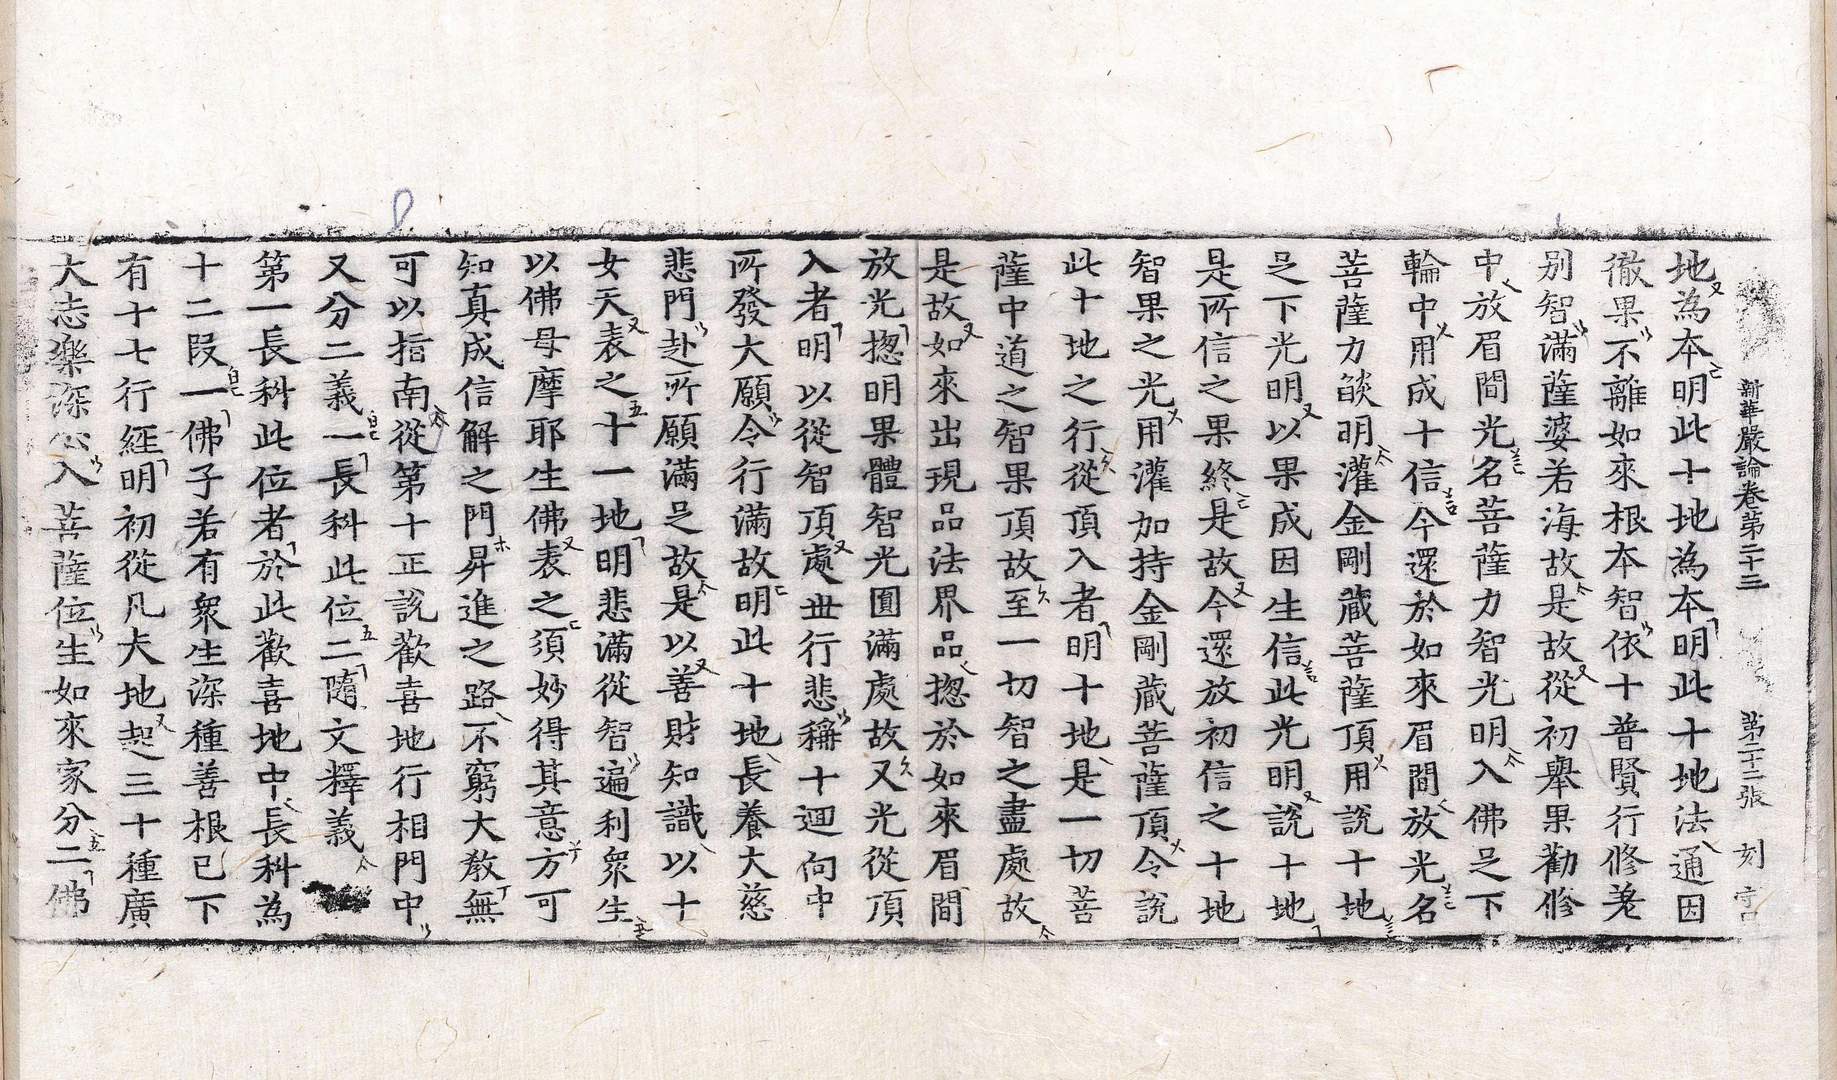 新華嚴論卷第二十三 第二十二張 刻 守
地為本明此十地為本明此十地法通因
徹果不離如來根本智依十普賢行修差
別智滿薩婆若海故是故從初舉果勸修
中放眉間光名菩薩力智光明入佛足下
輪中用成十信今還於如來眉間放光名
菩薩力燄明灌金剛藏菩薩頂用說十地
足下光明以果成因生信此光明說十地
是所信之果終是故今還放初信之十地
智果之光用灌加持金剛藏菩薩頂令說
此十地之行從頂入者明十地是一切菩
薩中道之智果頂故至一切智之盡處故
是故如來出現品法界品揔於如來眉間
放光揔明果體智光圓滿處故又光從頂
入者明以從智頂處世行悲稱十迴向中
所發大願令行滿故明此十地長養大慈
悲門赴所願滿足故是以善財知識以十
女天表之十一地明悲滿從智遍利眾生
以佛母摩耶生佛表之須妙得其意方可
知真成信解之門昇進之路不窮大教無
可以指南從第十正說歡喜地行相門中
又分二義一長科此位二隨文釋義
第一長科此位者於此歡喜地中長科為
十二段一佛子若有眾生深種善根已下
有十七行經明初從凡夫地起三十種廣
大志樂深心入菩薩位生如來家分二佛